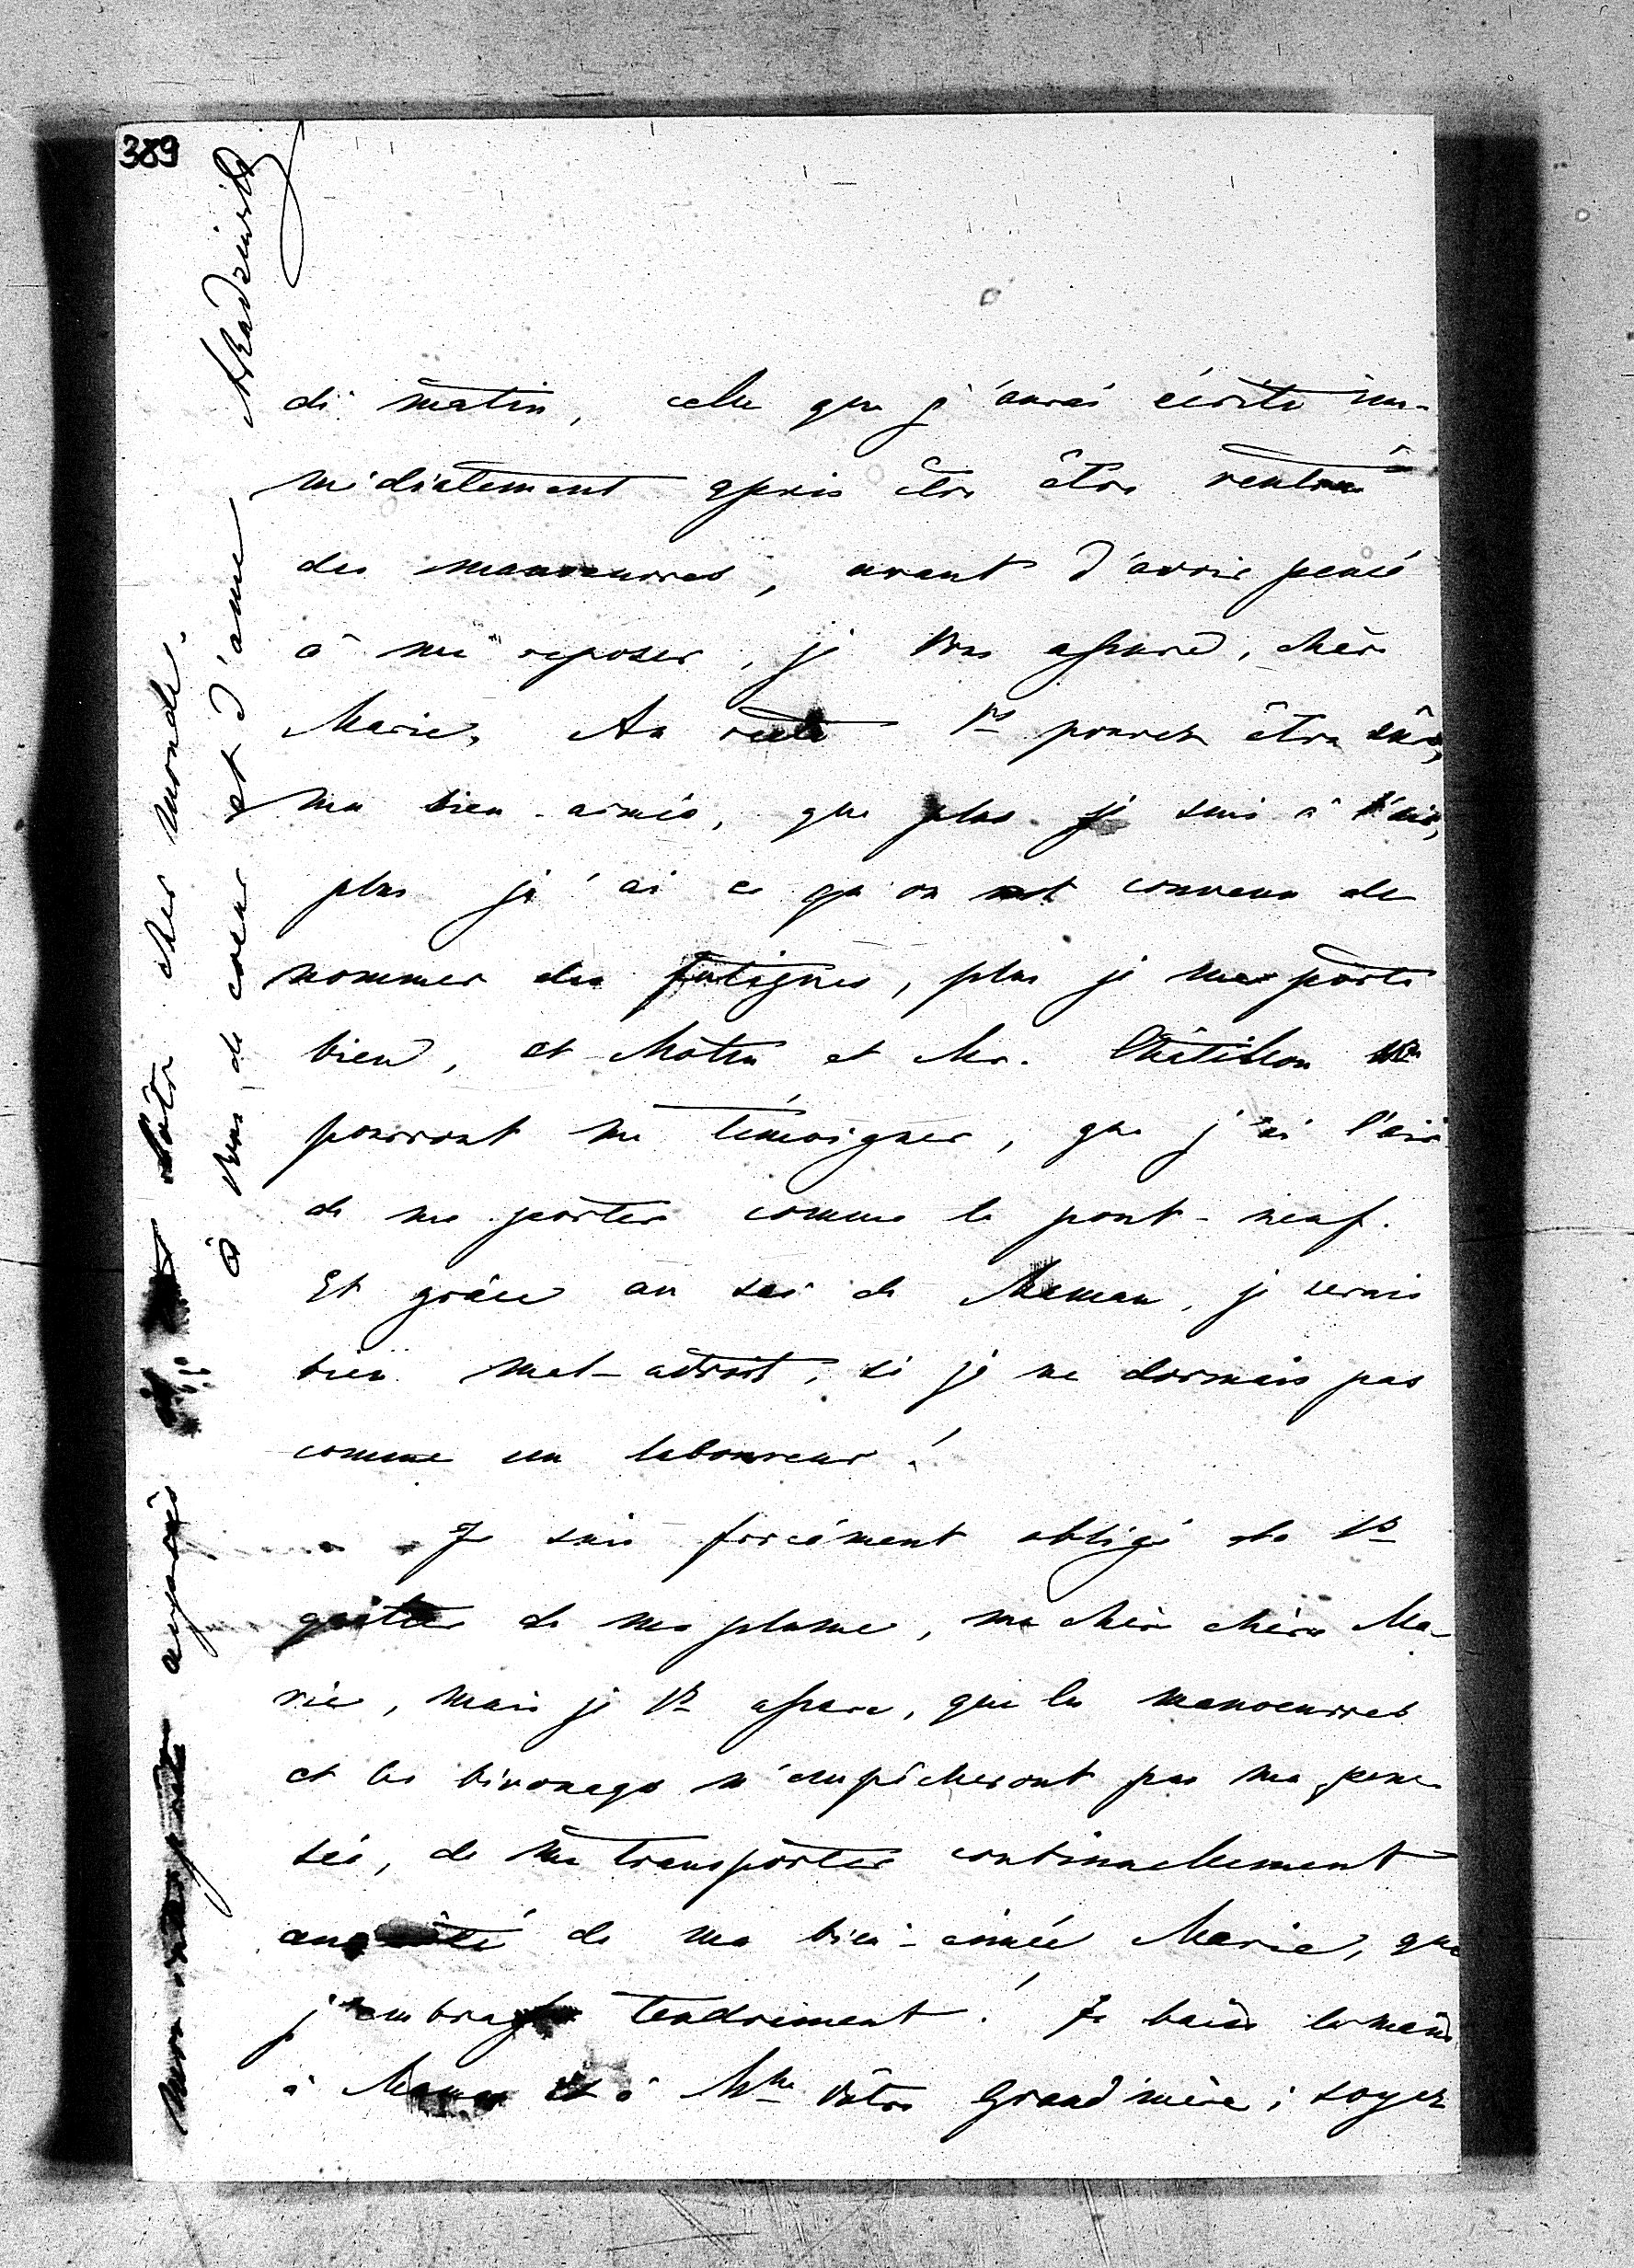 389
di matin, celle que j'aurai écrite im-
médiatement après être être rentré
des manoeuvres, avant d'avoir pensé
à me reposer, je Vous assure, chère
Marie. Au reste Vs pouvez être sûre,
ma bien-aimée, que plus je suis à l'air,
plus j'ai ce qu'on est convenu de
nommer des fatigues, plus je me porte
bien, et Mr. Châtillon Vs
pourront témoigner, que j'ai l'air
de me porter comme le pont-neuf.
Et grâce au de Maman, je serais
bien mal-adroit, si je ne dormais pas
comme un laboureur!
Je suis forcément obligé de Vs
quitter de ma plume, ma chère chère Ma-
rie, mais je Vs assure, que les manoeuvres
et les bivouaqs n'empêcheront pas ma pen-
sée, de me transporter continuellement
auprès de ma bien-aimée Marie, que
j'embrasse tendrement! Je baise les mains
à Maman et à Mme Vôtre Grand'mère; soyez
mon interprète auprès de Vôtre cher monde.
à Vous de coeur et d'ame
ARadziwill